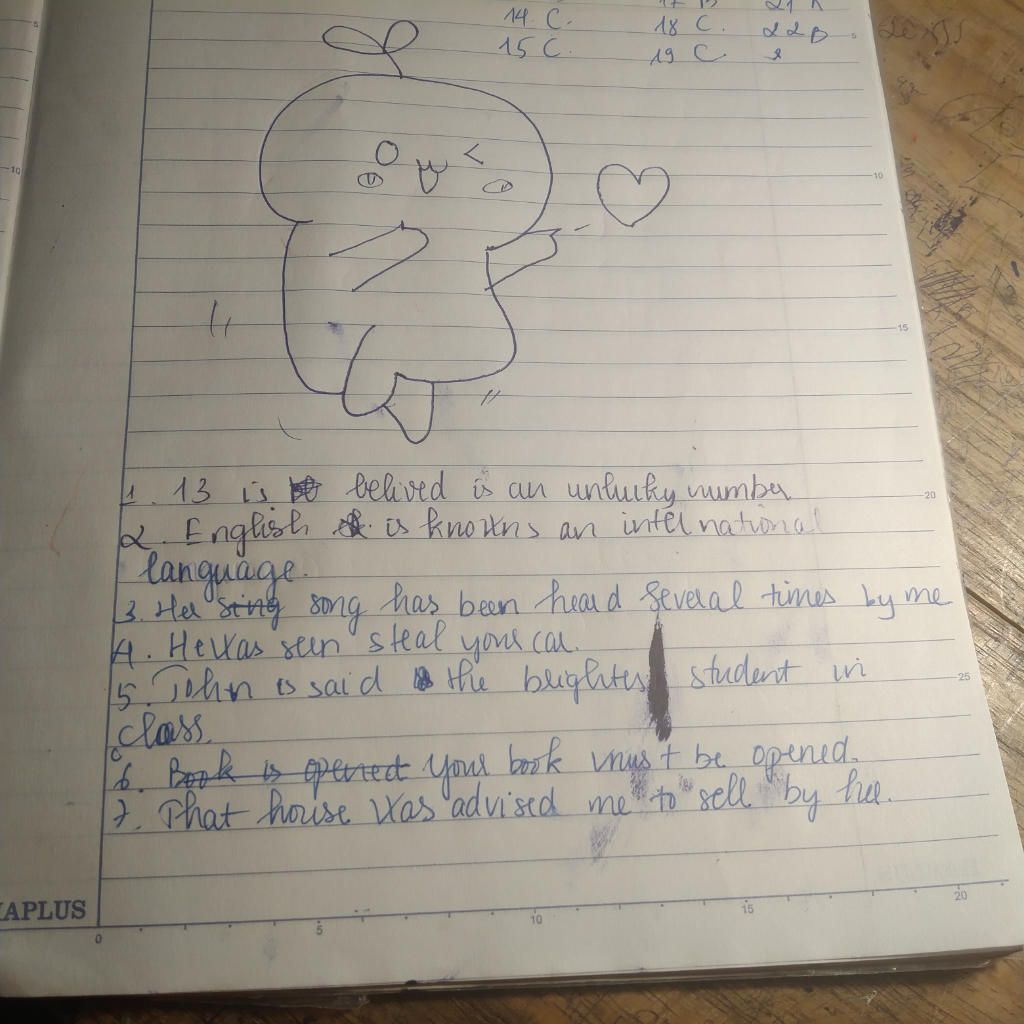 14. C.
18 C.
22B
15 C.
19 C.
1. 13 is belived is an unlucky number
2. English is knowns an international
language.
3. Her sing song has been heard several times by me
4. He was seen steal your car.
5. John is said the brightes student in
class.
6. Book is opened Your book must be opened.
7. That house was advised me to sell by her.
APLUS
0 5 10 15 20
10
15
20
25